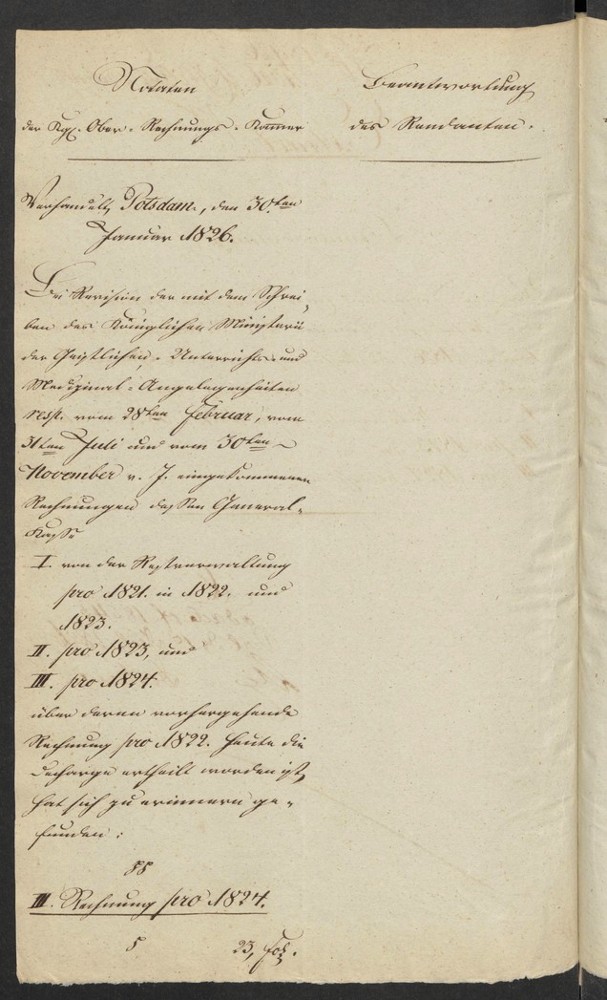 Notaten
der Kgl. Ober-Rechnungs-Kammer
Beantwortung
des Rendanten.
Verhandelt, Potsdam, den 30ten
Januar 1826.
Bei Revision der mit dem Schrei-
ben des Königlichen Ministerii
der Geistlichen-Unterrichts- und
Medizinal-Angelegenheiten
resp. vom 28ten Februar, vom
31ten Juli und vom 30ten
November v. J. eingekommenen
Rechnungen dessen General-
Kasse
I. von der Restverwaltung
pro 1821. in 1822. und
1823.
II. pro 1823, und
III. pro 1824.
über deren vorhergehende
Rechnung pro 1822. heute die
Decharge ertheilt worden ist,
hat sich zu erinnern ge-
funden:
III. Rechnung pro 1824.
23, Fol.